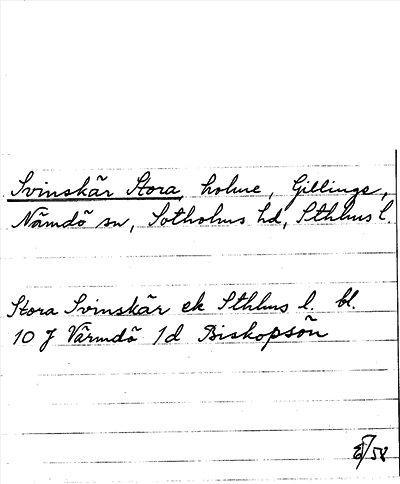 Svinskär Stora, holme, Gillinge,
Nämdö sn, Sotholms hd, Sthlms l.
Stora Svinskär ek Sthlms l. bl.
10 J Värmdö 1d Biskopsön
/58